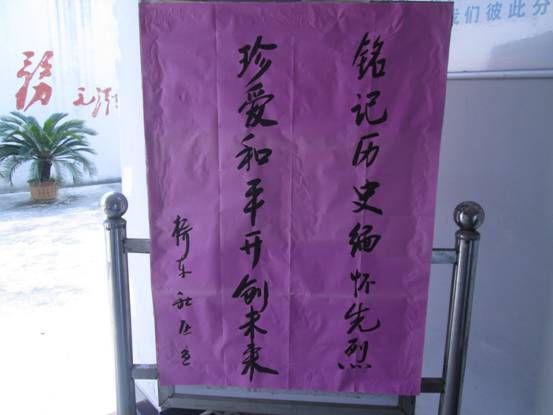 铭记历史缅怀先烈
珍爱和平开创未来
桥东社区宣
我们彼此分